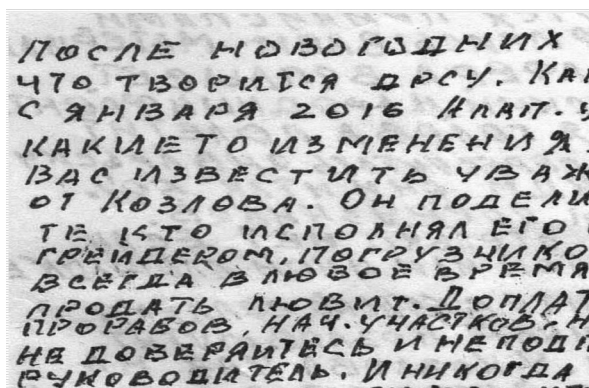 ПОСЛЕ НОВОГОДНИХ
ЧТО ТВОРИТСЯ ДРСУ. КА
С ЯНВАРЯ 2016 АЛАП. У
КАКИЕТО ИЗМЕНЕНИЯ
ВАС ИЗВЕСТИТЬ УВАЖ
ОТ КОЗЛОВА. ОН ПОДЕЛИ
ТЕ КТО ИСПОЛНЯЛ ЕГО
ГРЕЙДЕРОМ, ПОГРУЗЧИКО
ВСЕГДА В ЛЮБОЕ ВРЕМЯ
ПРОДАТЬ ЛЮБИТ. ДОПЛАТ
ПРОРАБОВ, НАЧ. УЧАСТКОВ, Н
НЕ ДОВЕРЯИТЕСЬ И НЕ ПОДП
РУКОВОДИТЕЛЬ. И НИКОГДА